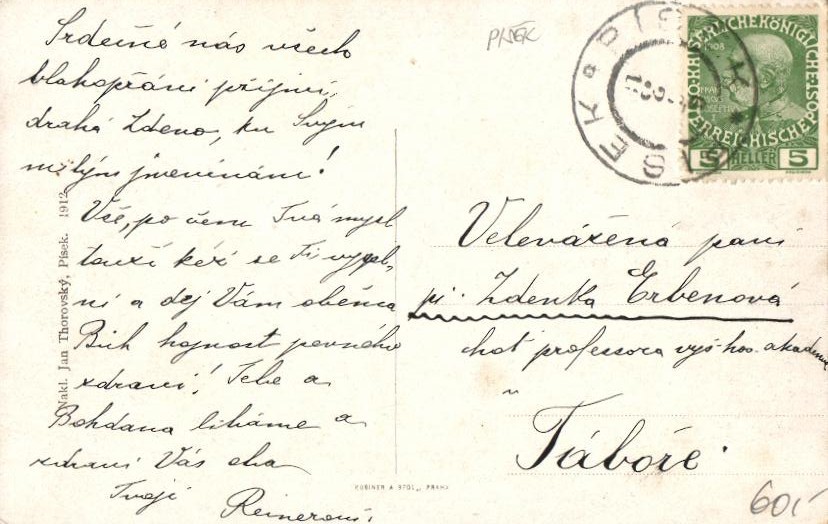 Srdečné nás všech
blahopřání přijmi,
drahá Zdeno, ku Svým
milým jmeninám!
Vše, po čem Tvá mysl
touží kéž se Ti vypl-
ní a dej Vám oběma
Bůh hojnost pevného
zdraví! Tebe a
Bohdana líbáme a
zdraví Vás oba
Tvoji
Reinerovi.
Nakl. Jan Thorovský, Písek. 1912
PÍSEK
PÍSEK PÍSEK
KAISERLICHE KÖNIGLICHE ÖSTERREICHISCHE POST
1908
5 HELLER 5
Velevážená paní
pí. Zdenka Erbenová
choť professora vyš. hos. akademie
v
Táboře.
KUBINER A STOL., PRAHA
60,-